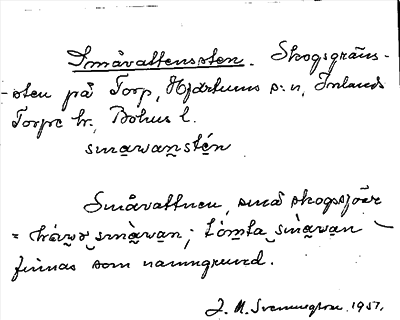 Småvattensten. Skogsgräns-
-sten på Torp, Hjärtums s:n, Inlands
Torpe hr., Bohus l.
smawanstén
Småvattnen, små skogssjöar
= smàwan; tómta smàwan
finnas som namngrund.
J. A. 1957.